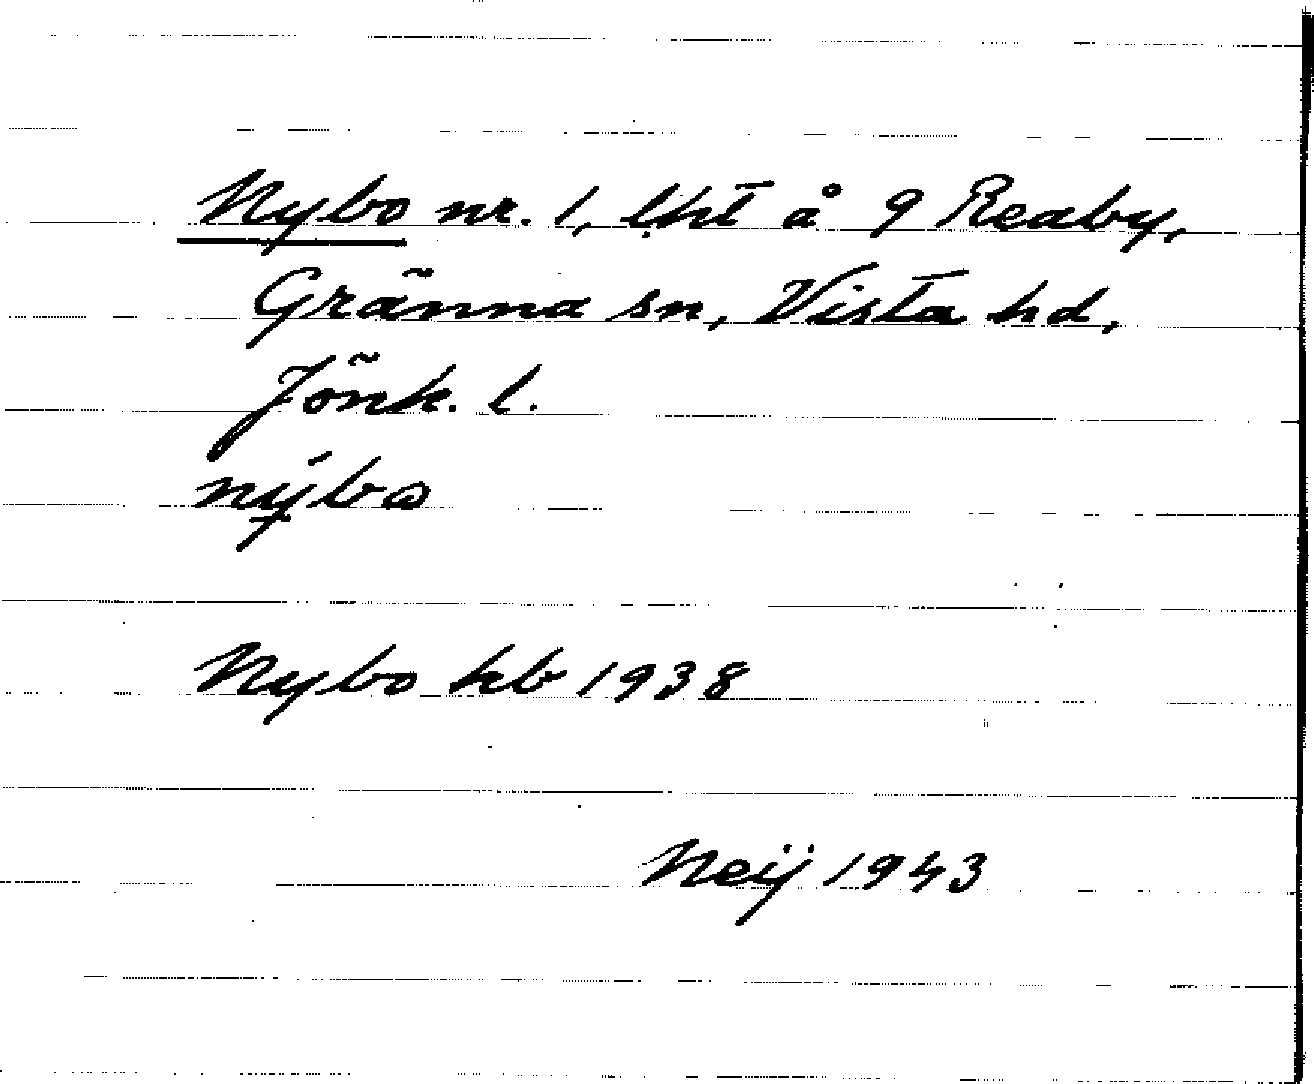 Nybo nr. 1, lht å 9 Reaby,
Gränna sn, Vista hd,
Jönk. l.
Nybo kb 1938
Neij 1943